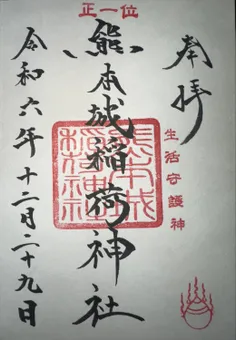 正一位
奉拝
生活守護神
熊本城稲荷神社
熊本城稲荷神社
令和六年十二月二十九日